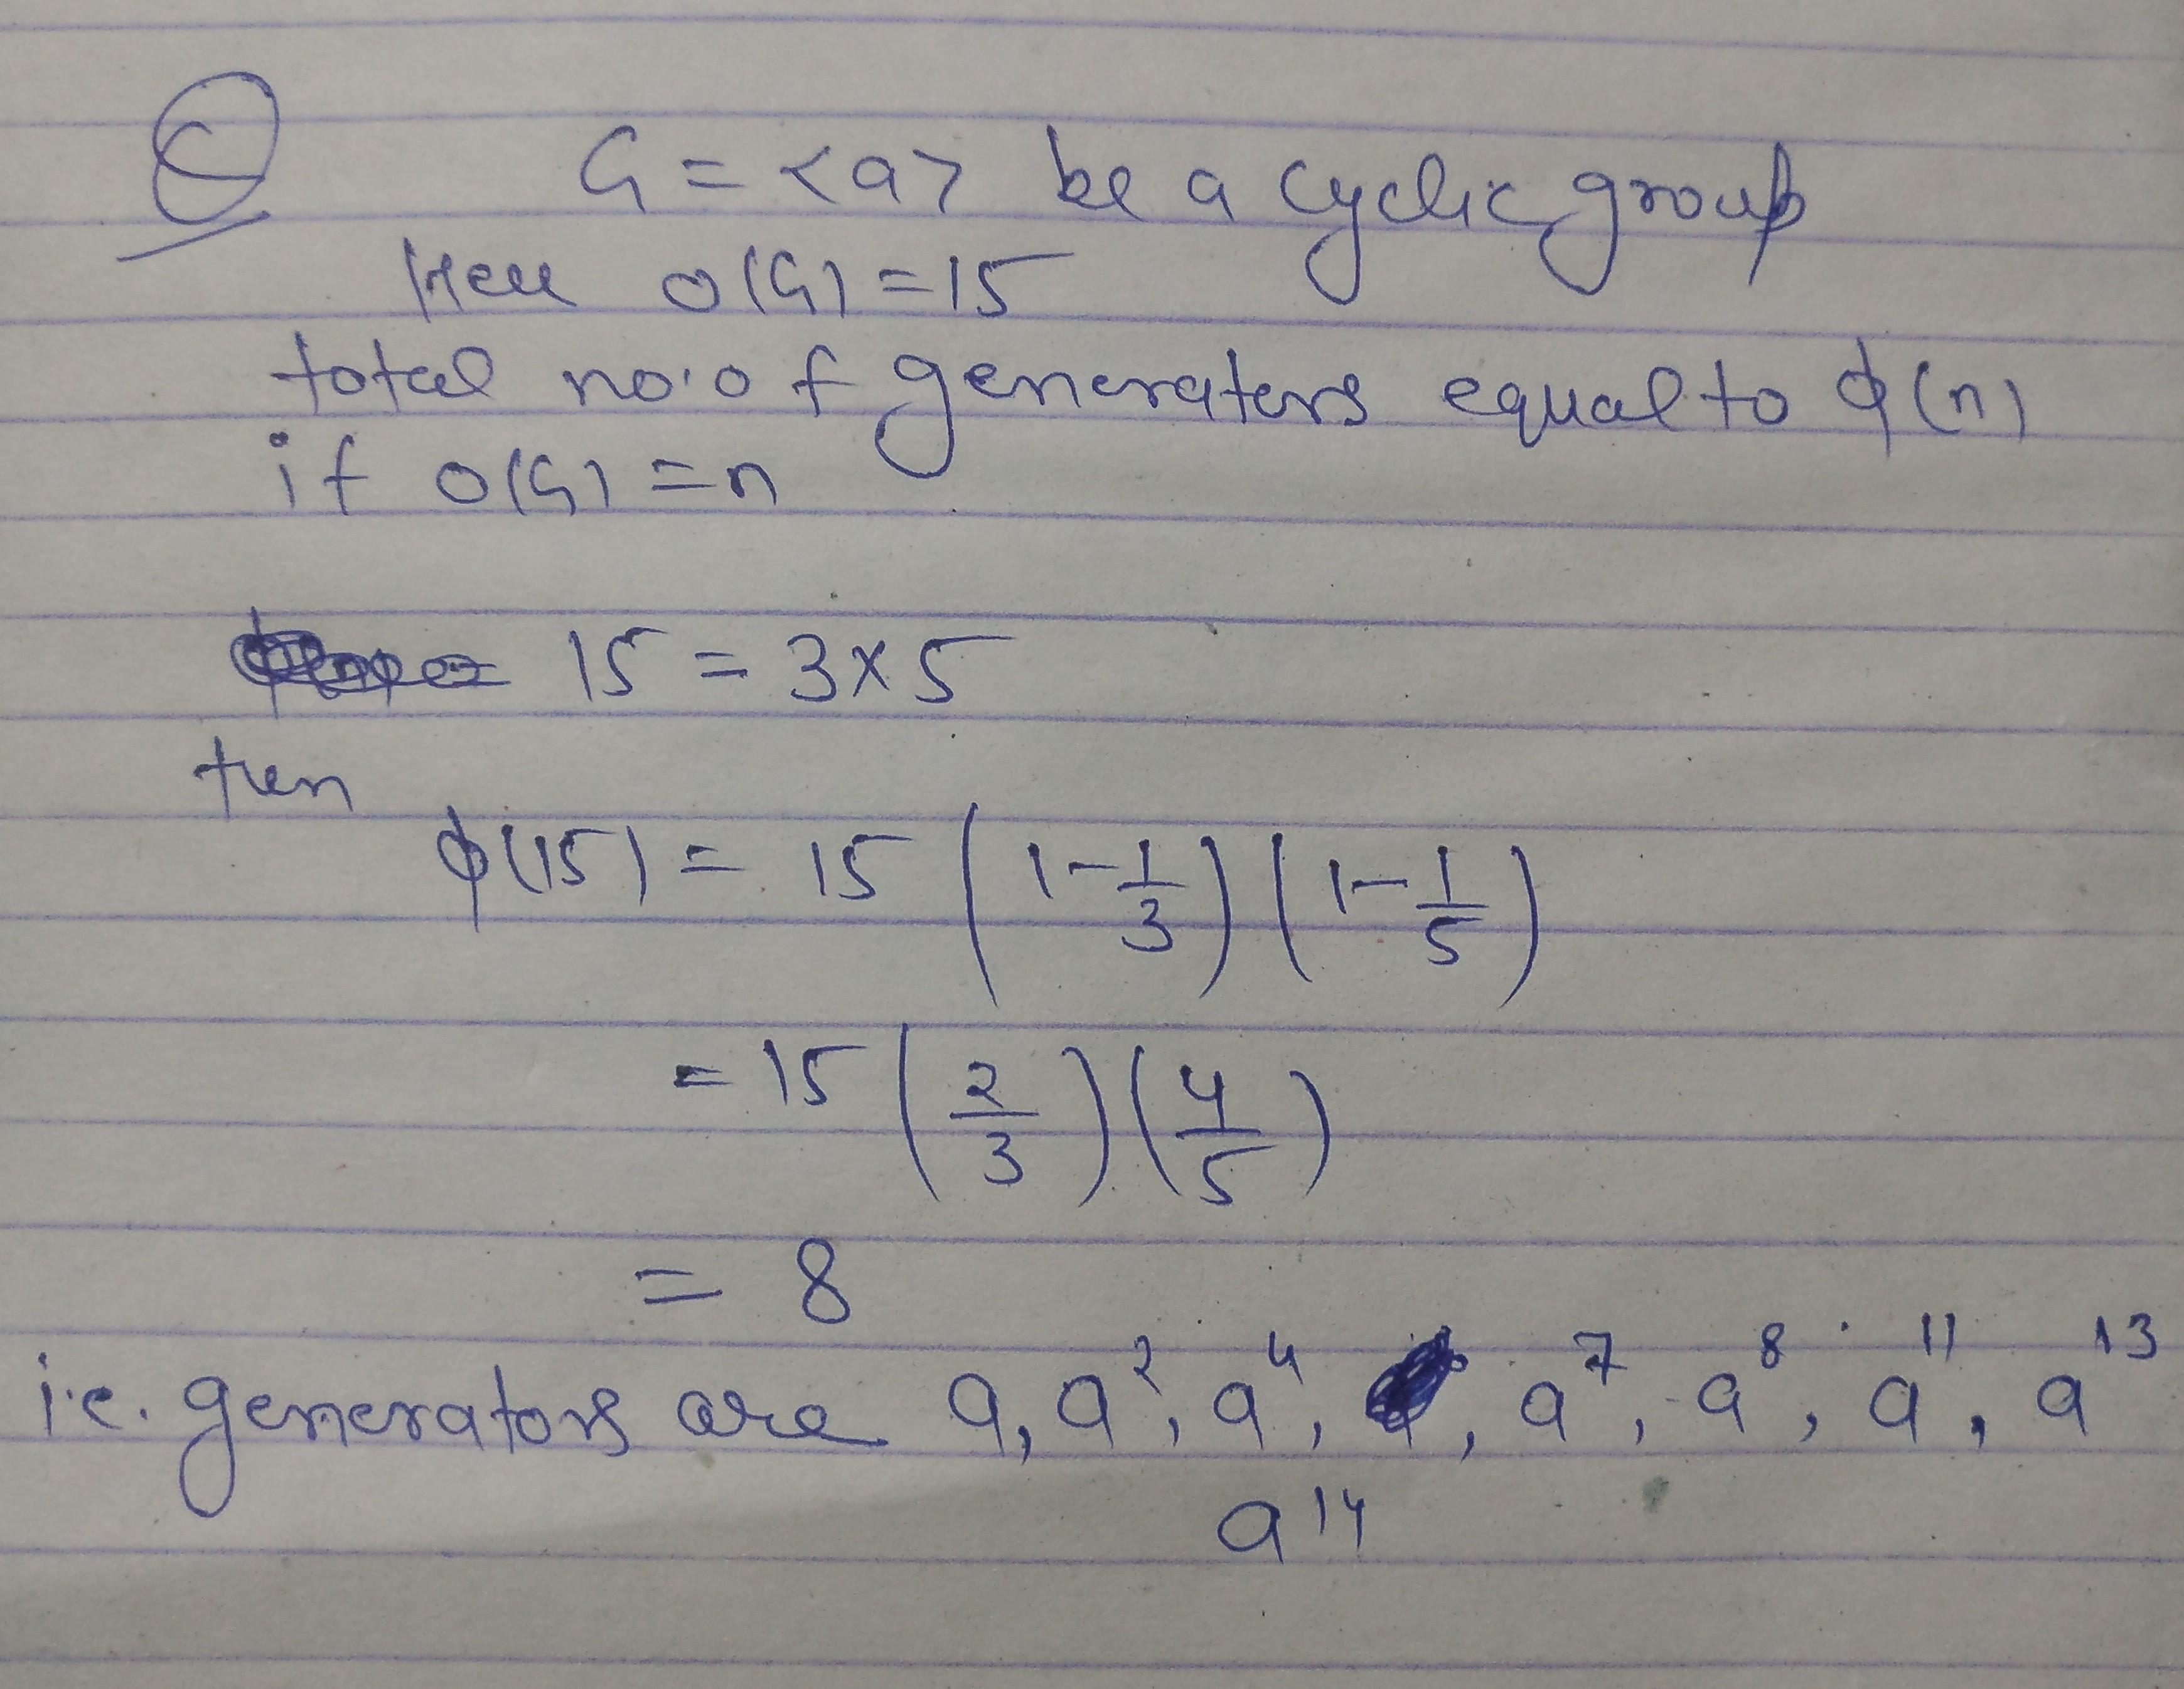 Q
G = <a> be a cyclic group
Here o(G) = 15
total no. of generators equal to ϕ(n)
if o(G) = n
15 = 3 × 5
then
ϕ(15) = 15 (1 - 1/3) (1 - 1/5)
= 15 (2/3) (4/5)
= 8
i.e. generators are a, a², a⁴, , a⁷, a⁸, a¹¹, a¹³
a¹⁴